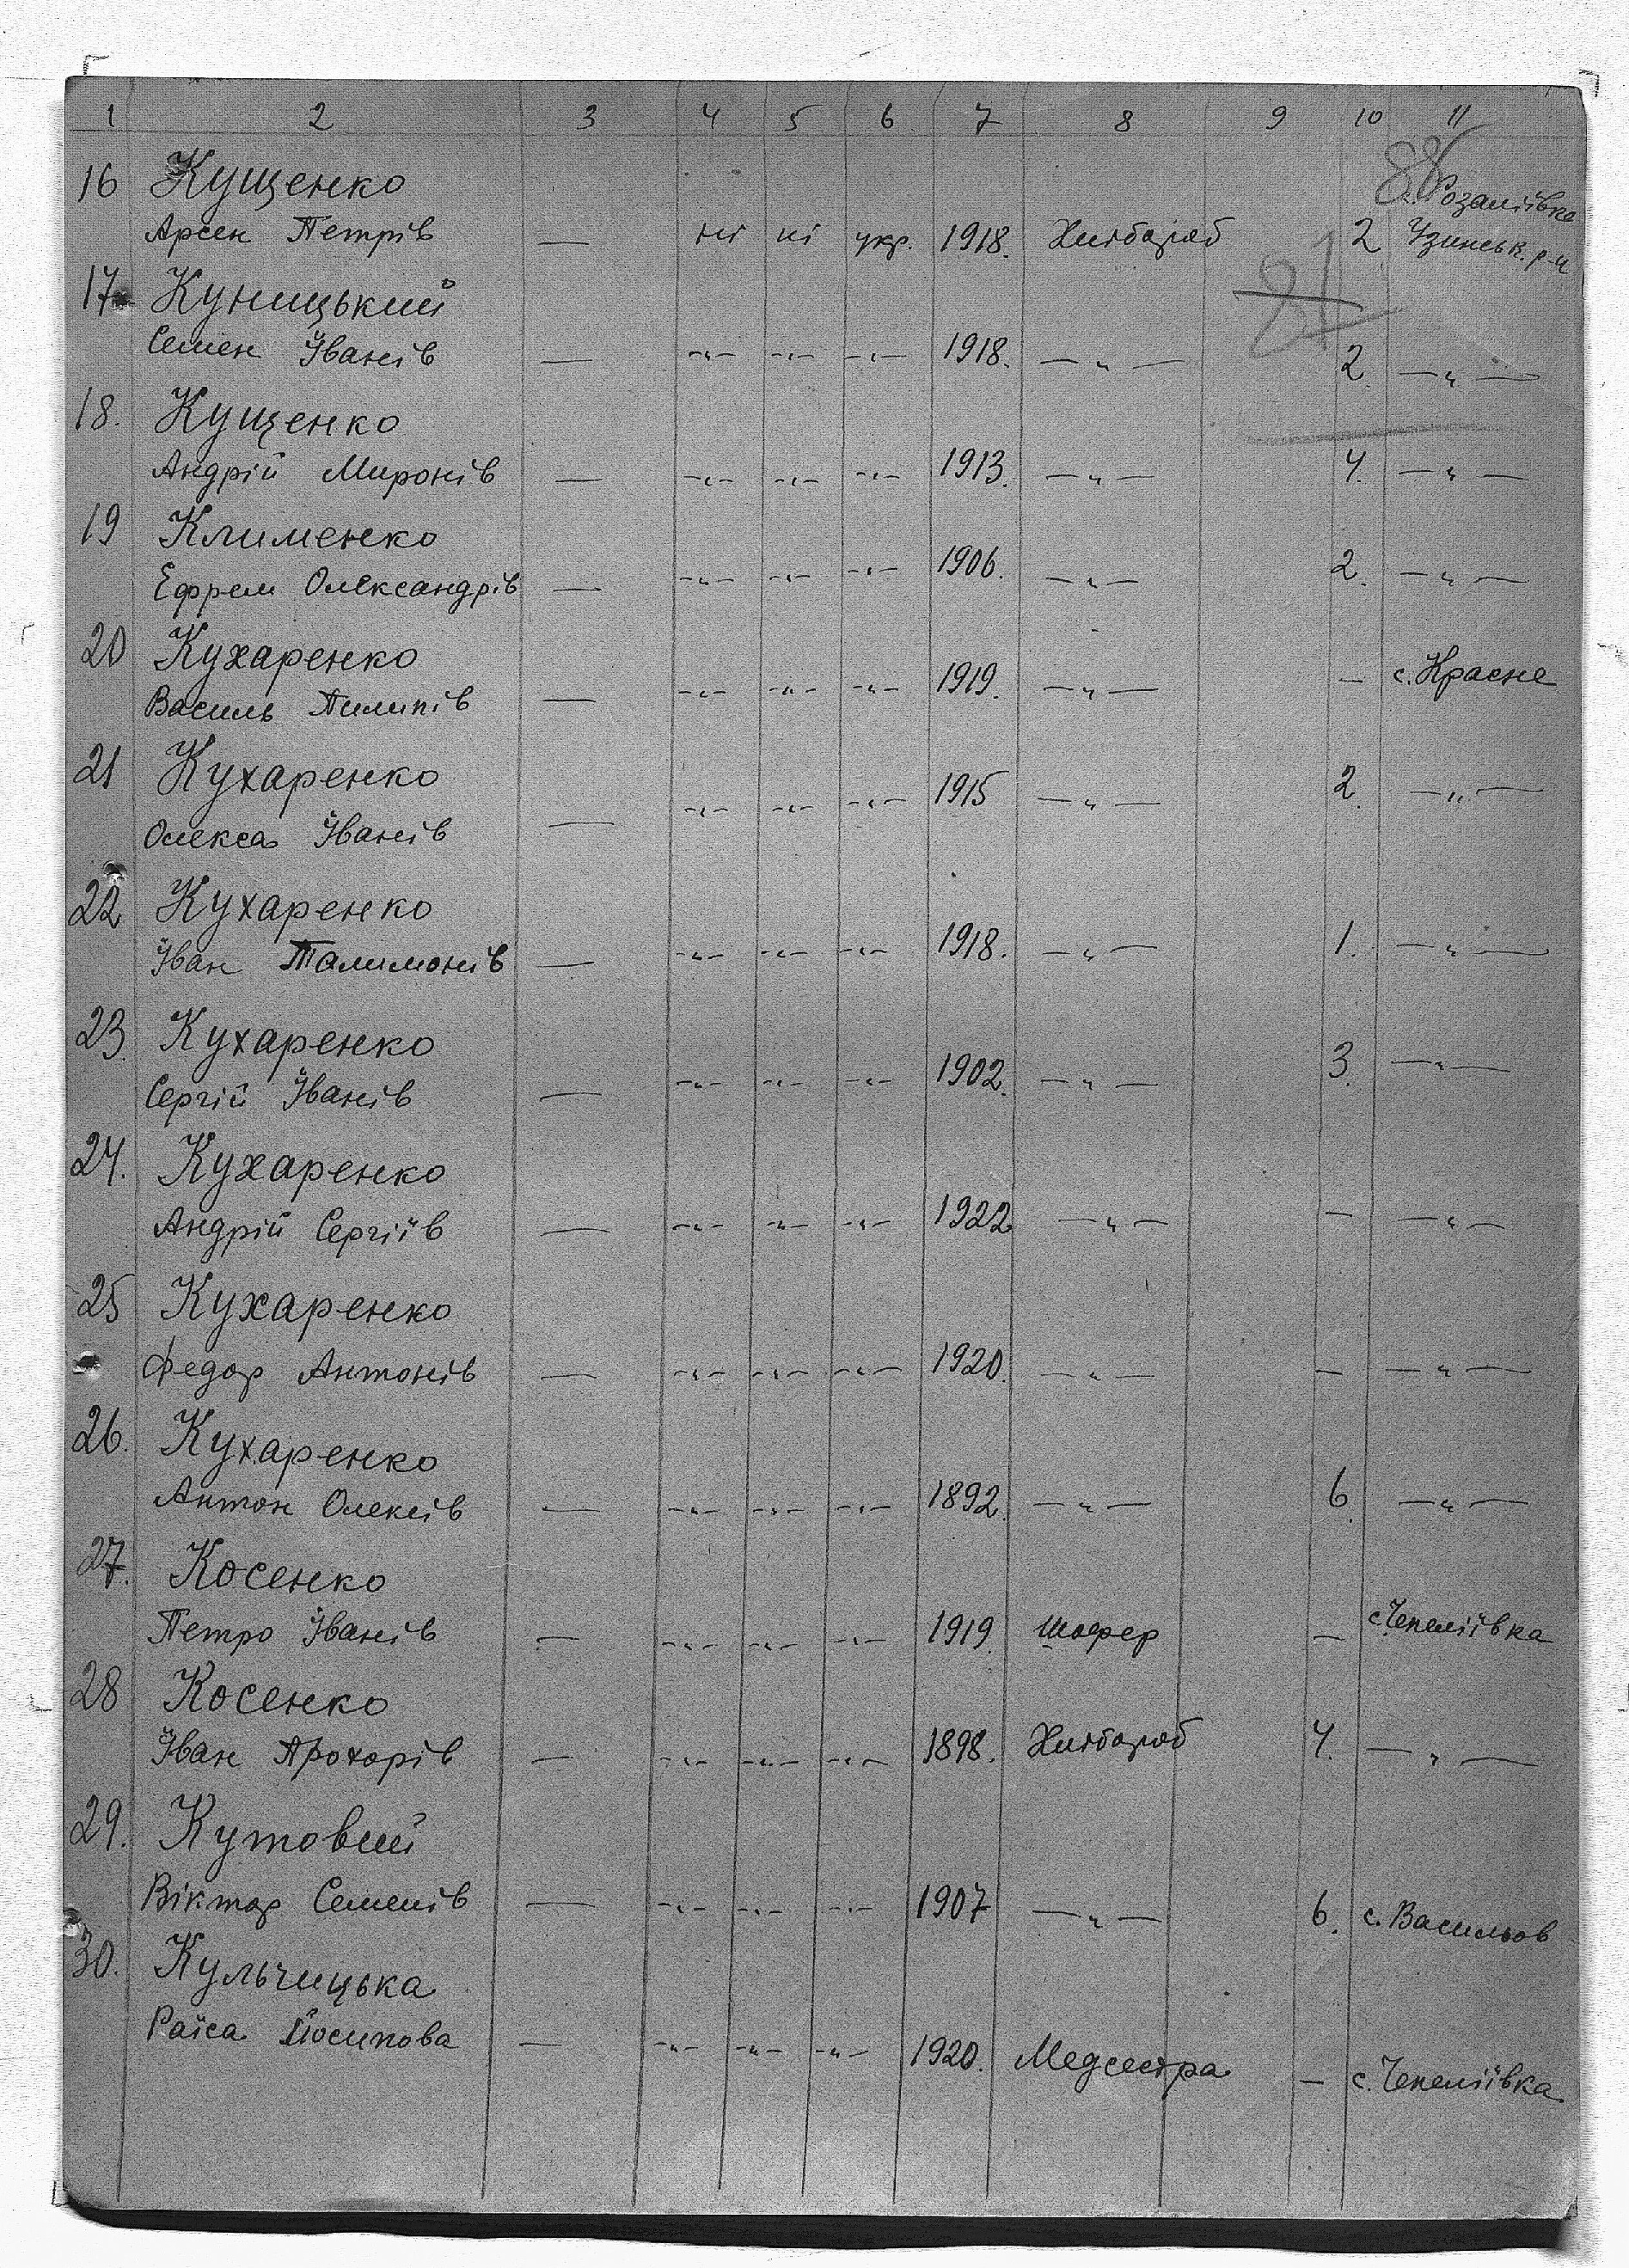 1 2 3 4 5 6 7 8 9 10 11
88
16 Кущенко с. Розаліївка
Арсен Петрів — ні ні укр. 1918. Хлібороб 2 Узинськ. р-н
81
17 Куницький
Семен Іванів — -"- -"- -"- 1918. -"- 2. -"-
18. Кущенко
Андрій Миронів — -"- -"- -"- 1913. -"- 4. -"-
19 Клименко
Ефрем Олександрів — -"- -"- -"- 1906. -"- 2. -"-
20 Кухаренко
Василь Пилипів — -"- -"- -"- 1919. -"- — с. Красне
21 Кухаренко
Олекса Іванів — -"- -"- -"- 1915 -"- 2. -"-
22 Кухаренко
Іван Талимонів — -"- -"- -"- 1918. -"- 1. -"-
23. Кухаренко
Сергій Іванів — -"- -"- -"- 1902. -"- 3. -"-
24. Кухаренко
Андрій Сергіїв — -"- -"- -"- 1922 -"- — -"-
25 Кухаренко
Федор Антонів — -"- -"- -"- 1920. -"- — -"-
26. Кухаренко
Антон Олексів — -"- -"- -"- 1892. -"- 6. -"-
27. Косенко
Петро Іванів — -"- -"- -"- 1919. Шофер — с. Чепеліївка
28 Косенко
Іван Прохорів — -"- -"- -"- 1898. Хлібороб 4. -"-
29. Кутовий
Віктор Семенів — -"- -"- -"- 1907 -"- 6. с. Васильов
30. Кульчицька
Раїса Йосипова — -"- -"- -"- 1920. Медсестра — с. Чепеліївка